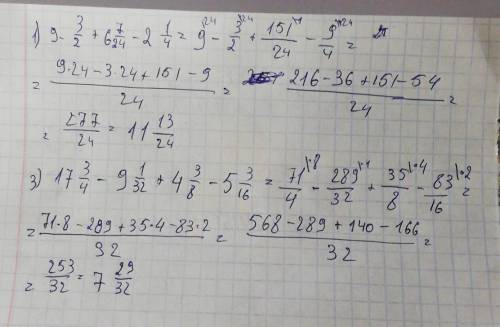 1) 9 - 3/2 + 6 7/24 - 2 1/4 = 9 - 3/2 + 151/24 - 9/4 =
= (9·24 - 3·24 + 151 - 9)/24 = (216 - 36 + 151 - 54)/24 =
= 277/24 = 11 13/24
3) 17 3/4 - 9 1/32 + 4 3/8 - 5 3/16 = 71/4 |·8 - 289/32 |·1 + 35/8 |·4 - 83/16 |·2 =
= (71·8 - 289 + 35·4 - 83·2)/32 = (568 - 289 + 140 - 166)/32 =
= 253/32 = 7 29/32